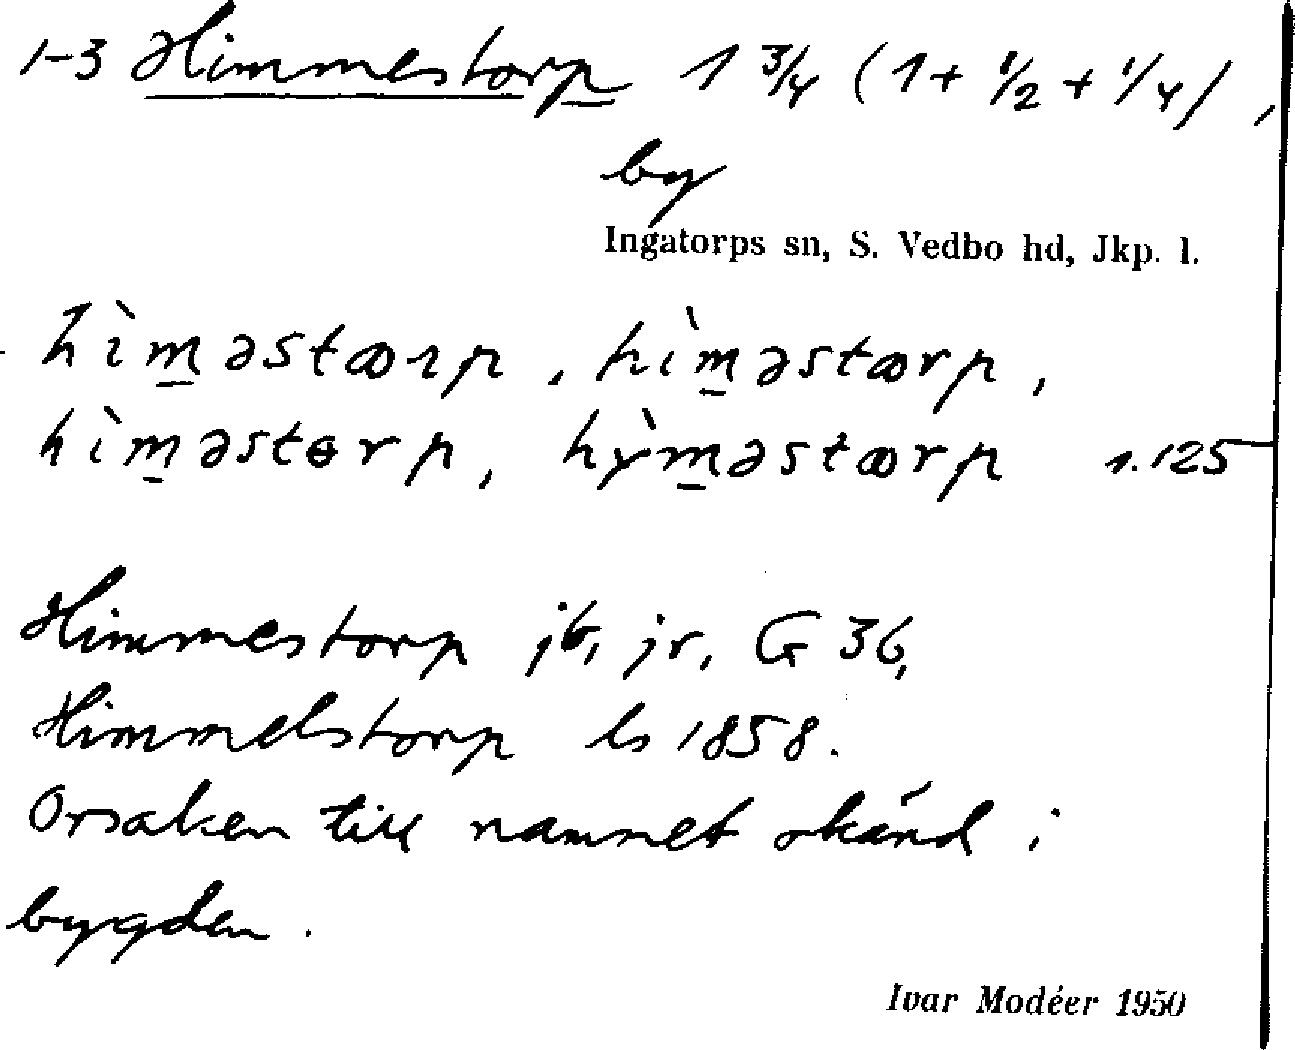 1-3 Himmestorp 1 3/4 (1 + 1/2 + 1/4),
by
Ingatorps sn, S. Vedbo hd, Jkp. l.
hìm̲əstꝏrp, hìm̲əstꝏrp,
hìm̲əstɵrp, hỳm̲əstꝏrp 1.125
Himmestorp jb, jr, G 36,
Himmelstorp ls 1858.
Orsaken till namnet okänd i
bygden.
Ivar Modéer 1950